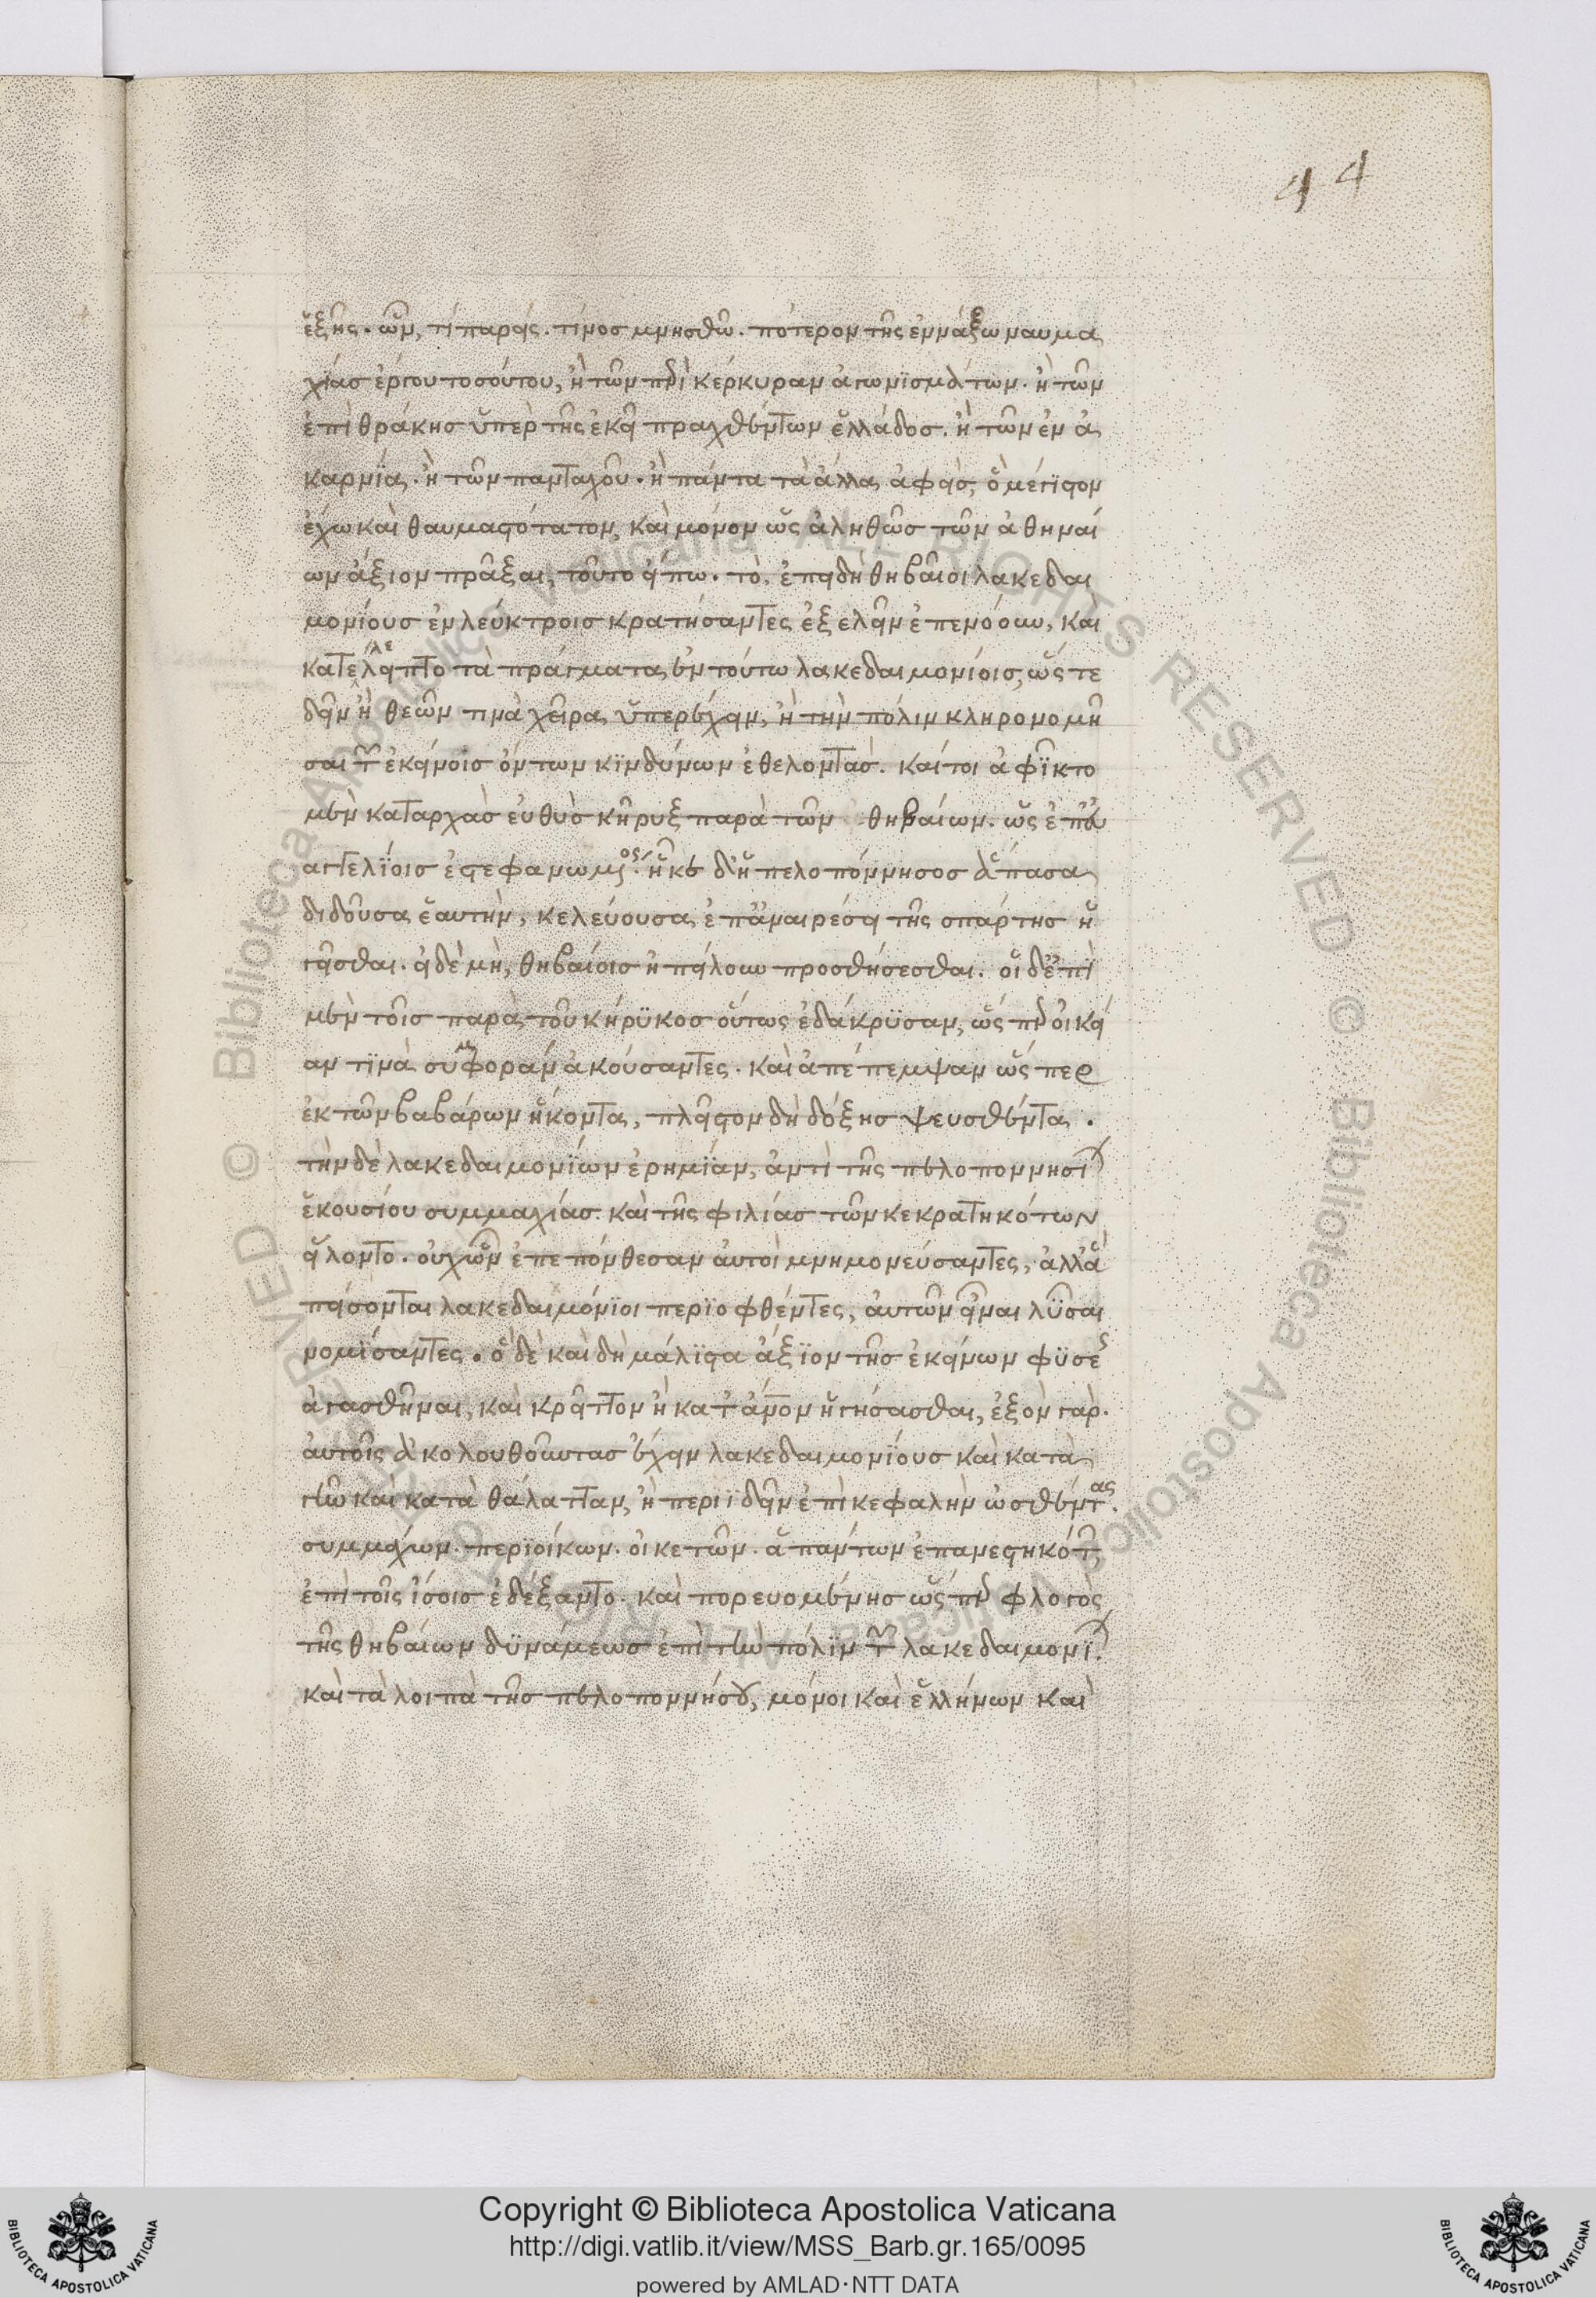 44
ἑξῆς. ὧν, τί παρῇς. τίνος μνησθῶ. πότερον τῆς ἐν νάξω ναυμα
χίας ἔργου τοσούτου, ἢ τῶν περὶ κέρκυραν ἀγωνϊσμάτων. ἢ τῶν
ἐπὶ θράκης ὑπὲρ τῆς ἐκεῖ πραχθέντων ἑλλάδος. ἢ τῶν ἐν ἀ
καρνΐα. ἢ τῶν πανταχοῦ. ἢ πάντα τὰ ἄλλα ἀφεὶς, ὃ μέγϊστον
ἔχω καὶ θαυμαστότατον, καὶ μόνον ὡς ἀληθῶς τῶν ἀθηναί
ων ἄξιον πρᾶξαι, τοῦτο εἴπω. τὸ, ἐπειδὴ θηβαῖοι λακεδαι
μονίους ἐν λεύκτροις κρατήσαντες ἐξελεῖν ἐπενόουν, καὶ
κατελέλειπτο τὰ πράγματα ἐν τούτω λακεδαιμονίοις, ὥς τε
δεῖν ἢ θεῶν τινὰ χεῖρα ὑπερέχειν, ἢ τὴν πόλιν κληρονομῆ
σαι τῶν ἐκείνοις ὄντων κϊνδύνων ἐθελοντάς. καίτοι ἀφῖκτο
μὲν καταρχὰς εὐθὺς κῆρυξ παρὰ τῶν θηβαίων. ὡς ἐπ' εὐ
αγγελΐοις ἐστεφανωμένος. ἧκε δ' ἡ πελοπόννησος ἅπασα
διδοῦσα ἑαυτὴν, κελεύουσα ἐπ' ἀναιρέσει τῆς σπάρτης ἡ
γεῖσθαι. εἰ δὲ μὴ, θηβαίοις ἠπείλουν προσθήσεσθαι. οἱ δ' ἐπὶ
μὲν τοῖς παρὰ τοῦ κήρϋκος οὕτως ἐδάκρϋσαν, ὥς περ οἰκεί
αν τϊνὰ συμφορὰν ἀκούσαντες. καὶ ἀπέπεμψαν ὥς περ
ἐκ τῶν βαβάρων ἥκοντα, πλεῖστον δὴ δόξης ψευσθέντα.
τὴν δὲ λακεδαιμονΐων ἐρημΐαν, ἀντὶ τῆς πελοποννησί
ἑκουσίου συμμαχίας. καὶ τῆς φιλίας τῶν κεκρατηκότων
εἵλοντο. οὐχ ὧν ἐπεπόνθεσαν αὐτοὶ μνημονεύσαντες, ἀλλ' ἃ
πείσονται λακεδαιμόνϊοι περϊοφθέντες, αὐτῶν εἶναι λῦσαι
νομΐσαντες. ὃ δὲ καὶ δὴ μάλϊστα ἄξϊον τῆς ἐκείνων φϋσε
ἀγασθῆναι, καὶ κρεῖττον ἢ κατ' ἄνον ἡγήσασθαι, ἐξὸν γὰρ.
αὐτοῖς ἀκολουθοῦντας ἔχειν λακεδαιμονΐους καὶ κατὰ
γῆν καὶ κατὰ θάλατταν, ἢ περιϊδεῖν ἐπὶ κεφαλὴν ὠσθέντας.
συμμάχων. περϊοίκων. οἰκετῶν. ἁπάντων ἐπανεστηκότ
ἐπὶ τοῖς ἴσοις ἐδέξαντο. καὶ πορευομένης ὥς περ φλογὸς
τῆς θηβαίων δϋνάμεως ἐπὶ τὴν πόλϊν τῶν λακεδαιμονΐ.
καὶ τὰ λοιπὰ τῆς πελοποννήσου, μόνοι καὶ ἑλλήνων καὶ
Copyright © Biblioteca Apostolica Vaticana
http://digi.vatlib.it/view/MSS_Barb.gr.165/0095
powered by AMLAD·NTT DATA